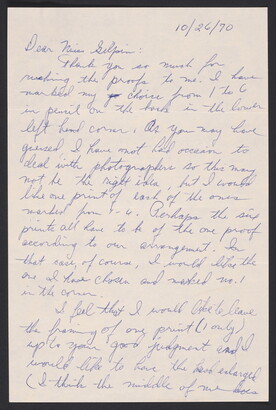 10/26/70
Dear Miss Gilpin:
Thank you so much for
rushing the proofs to me. I have
marked my choice from 1 to 6
in pencil on the back in the lower
left hand corner. As you may have
guessed, I have not had occasion to
deal with photographers so this may
not be the right idea, but I would
like one print of each of the ones
marked from 1-6. Perhaps the six
prints all have to be of the one proof
according to our arrangement. In
that case, of course, I would like the
one I have chosen and marked no. 1
in the corner.
I feel that I would like to leave
the framing of one print (1 only)
up to your good judgment and I
would like to have the head enlarged
(I think the middle of me does